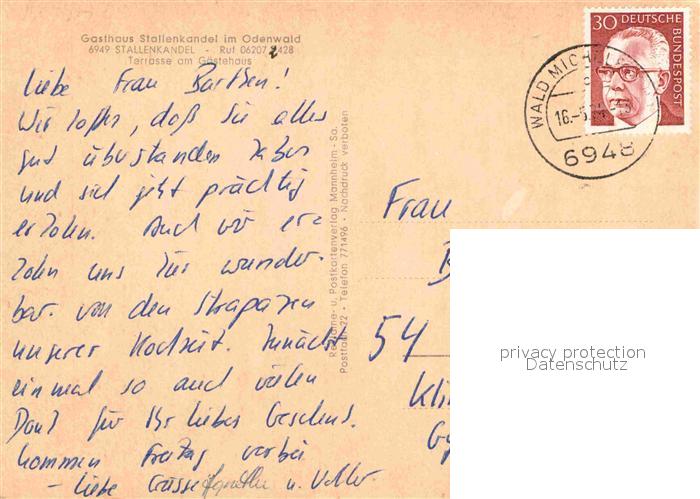 Gasthaus Stallenkandel im Odenwald
6949 STALLENKANDEL - Ruf 06207 2428
Terrasse am Gästehaus
Liebe Frau !
Wir hoffen, daß Sie alles
gut überstanden haben
und sich jetzt prächtig
erholen. Auch wir er-
holen uns hier wunder-
bar von den Strapazen
unserer Hochzeit. Zunächst
einmal so auch vielen
Dank für Ihr liebes Geschenk.
Kommen Freitag vorbei
- Liebe Grüsse u.
Reklame- u. Postkartenverlag Mannheim - Sa.
Postfach 22 · Telefon 771496 · Nachdruck verboten
30 DEUTSCHE
BUNDESPOST
WALD MICHEL
16.-5.
6948
Frau
B
54
Kli
privacy protection
Datenschutz